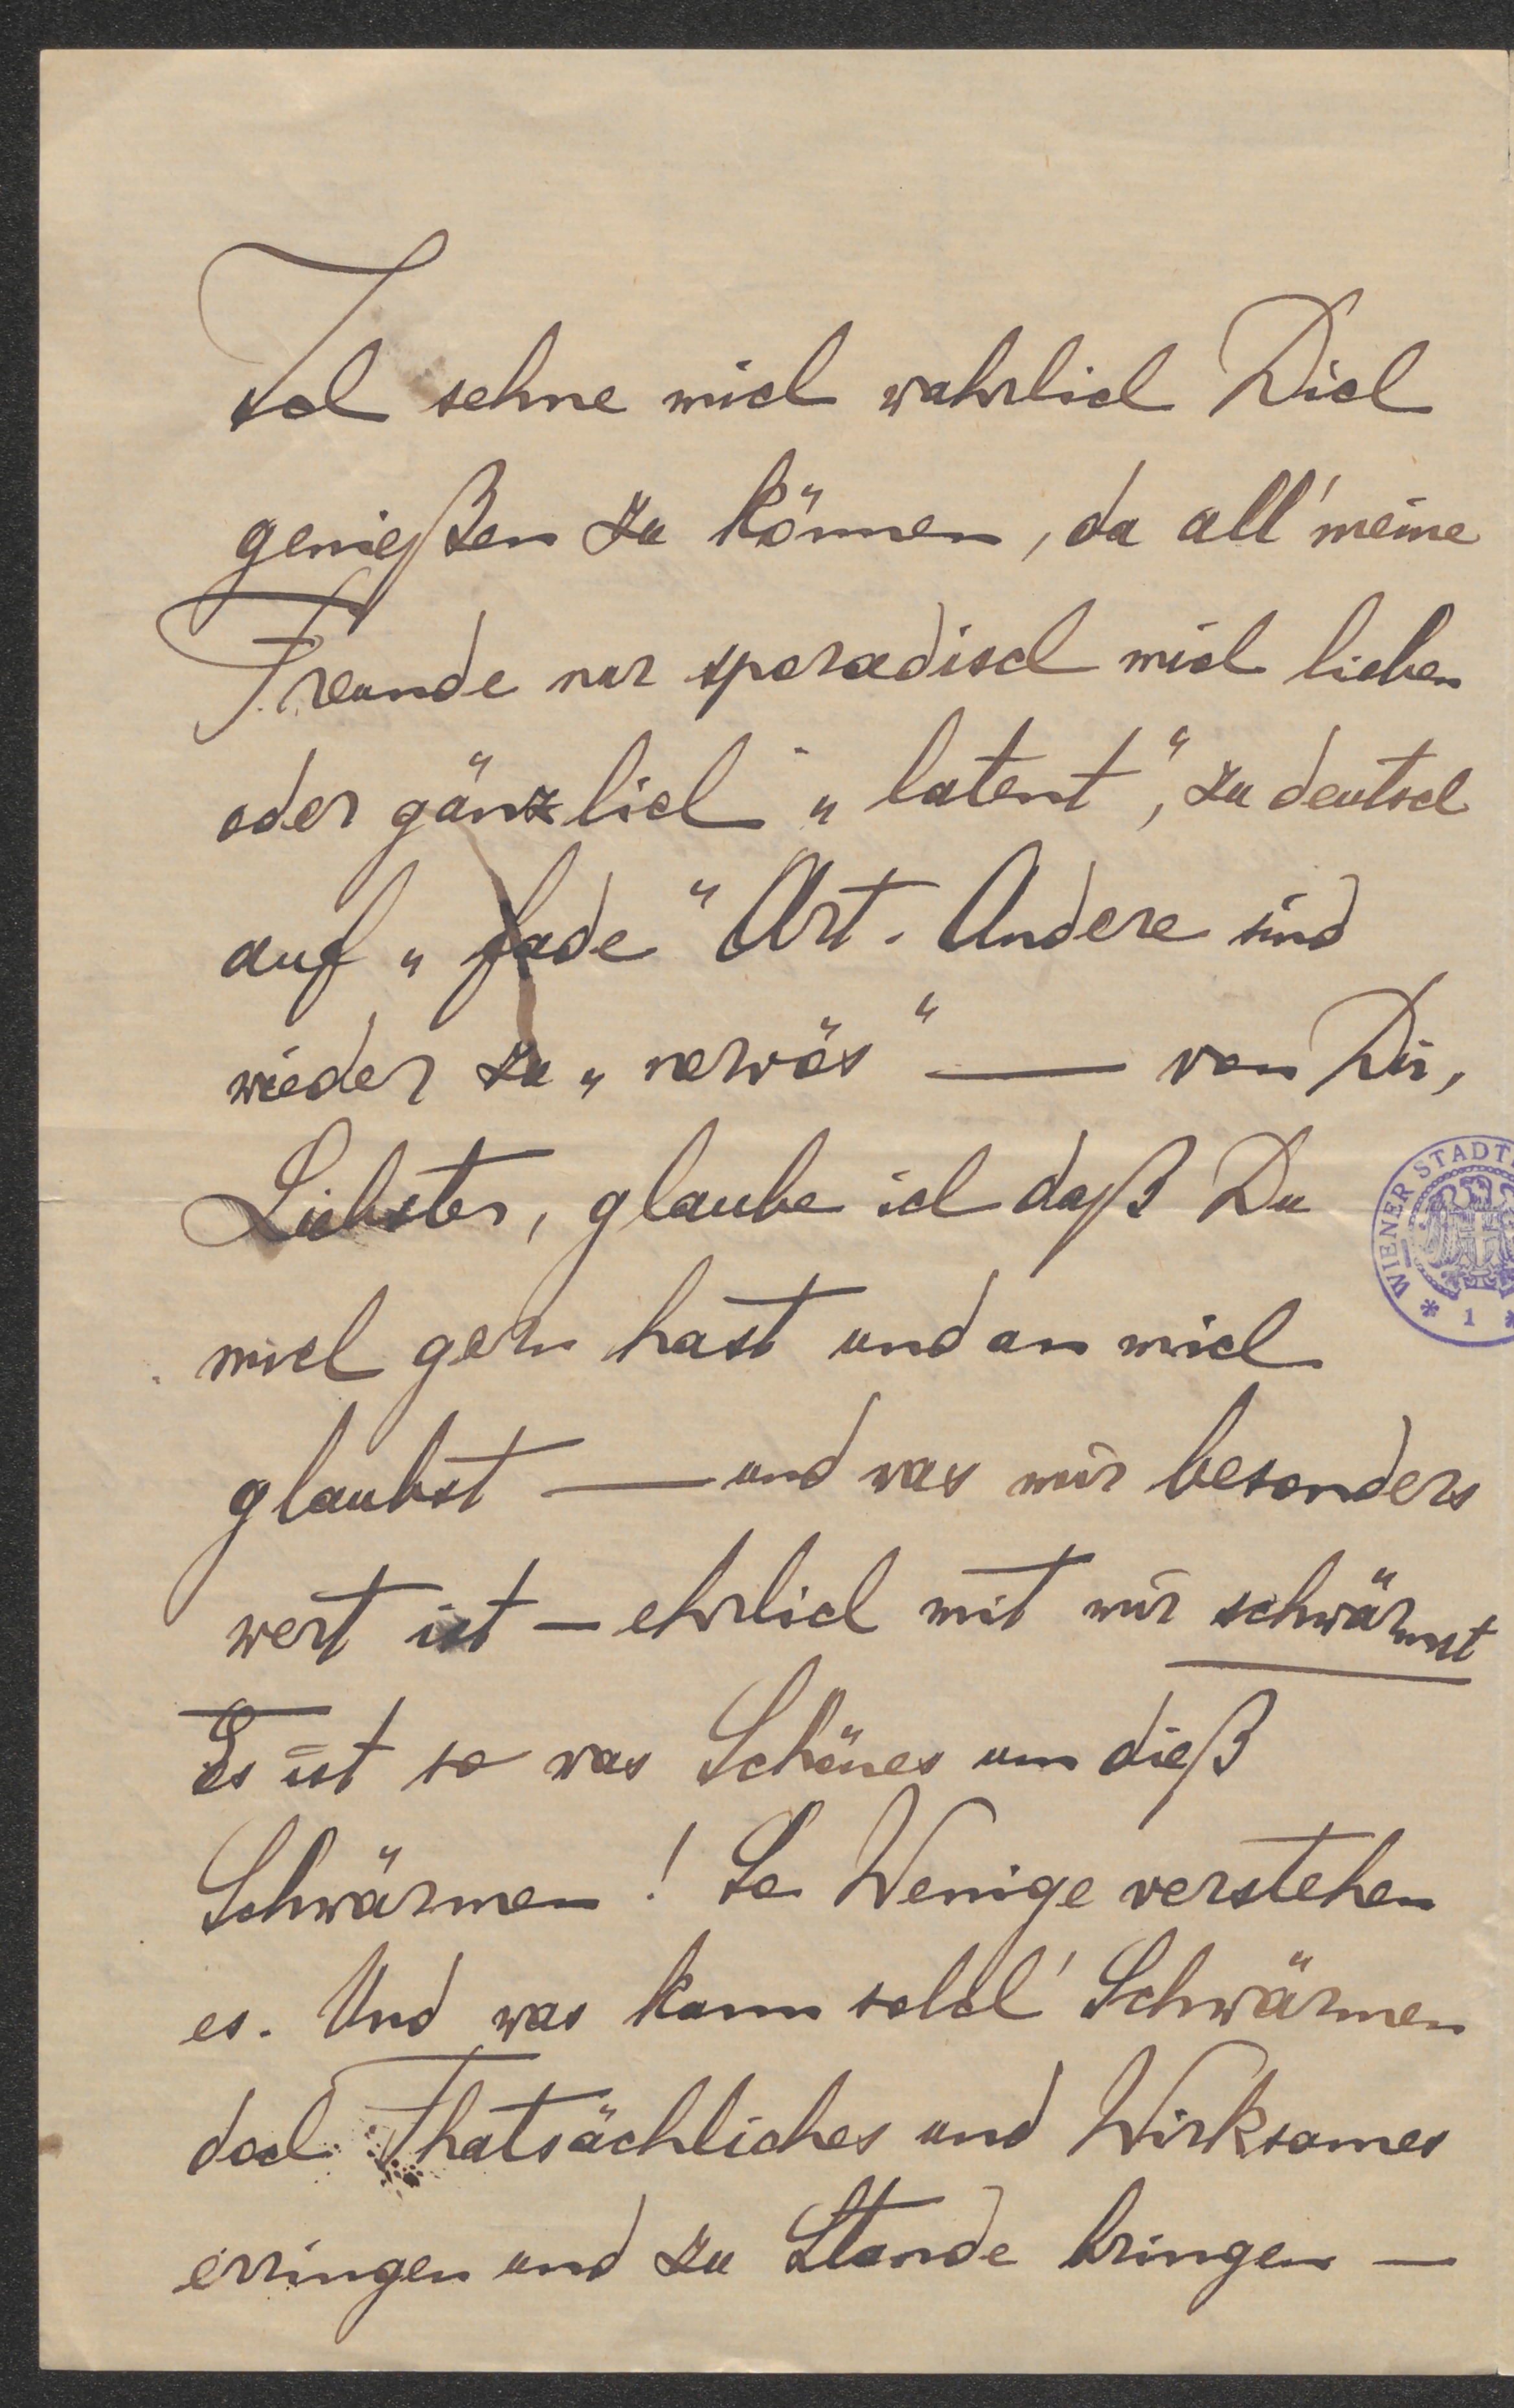 Ich sehne mich wahrlich Dich
genießen zu können, da all' meine
Freunde nur sporadisch mich lieben
oder gänzlich „latent“, zu deutsch
auf „fade“ Art. Andere sind
wieder zu „nervös“ — von Dir,
Liebster, glaube ich daß Du
mich gern hast und an mich
glaubst — und was mir besonders
wert ist — ehrlich mit mir schwärmst
Es ist so was Schönes um dieß
Schwärmen! So Wenige verstehen
es. Und was kann solch' Schwärmen
doch Thatsächliches und Wirksames
erringen und zu Stande bringen —
WIENER STADT
* 1 *